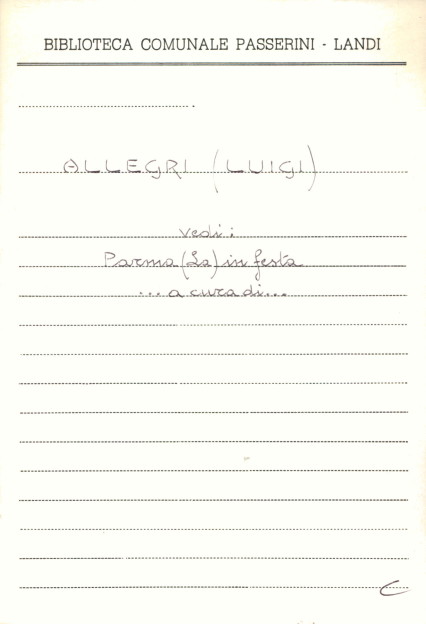 BIBLIOTECA COMUNALE PASSERINI - LANDI
ALLEGRI (LUIGI)
vedi:
Parma (La) in festa
... a cura di...
C